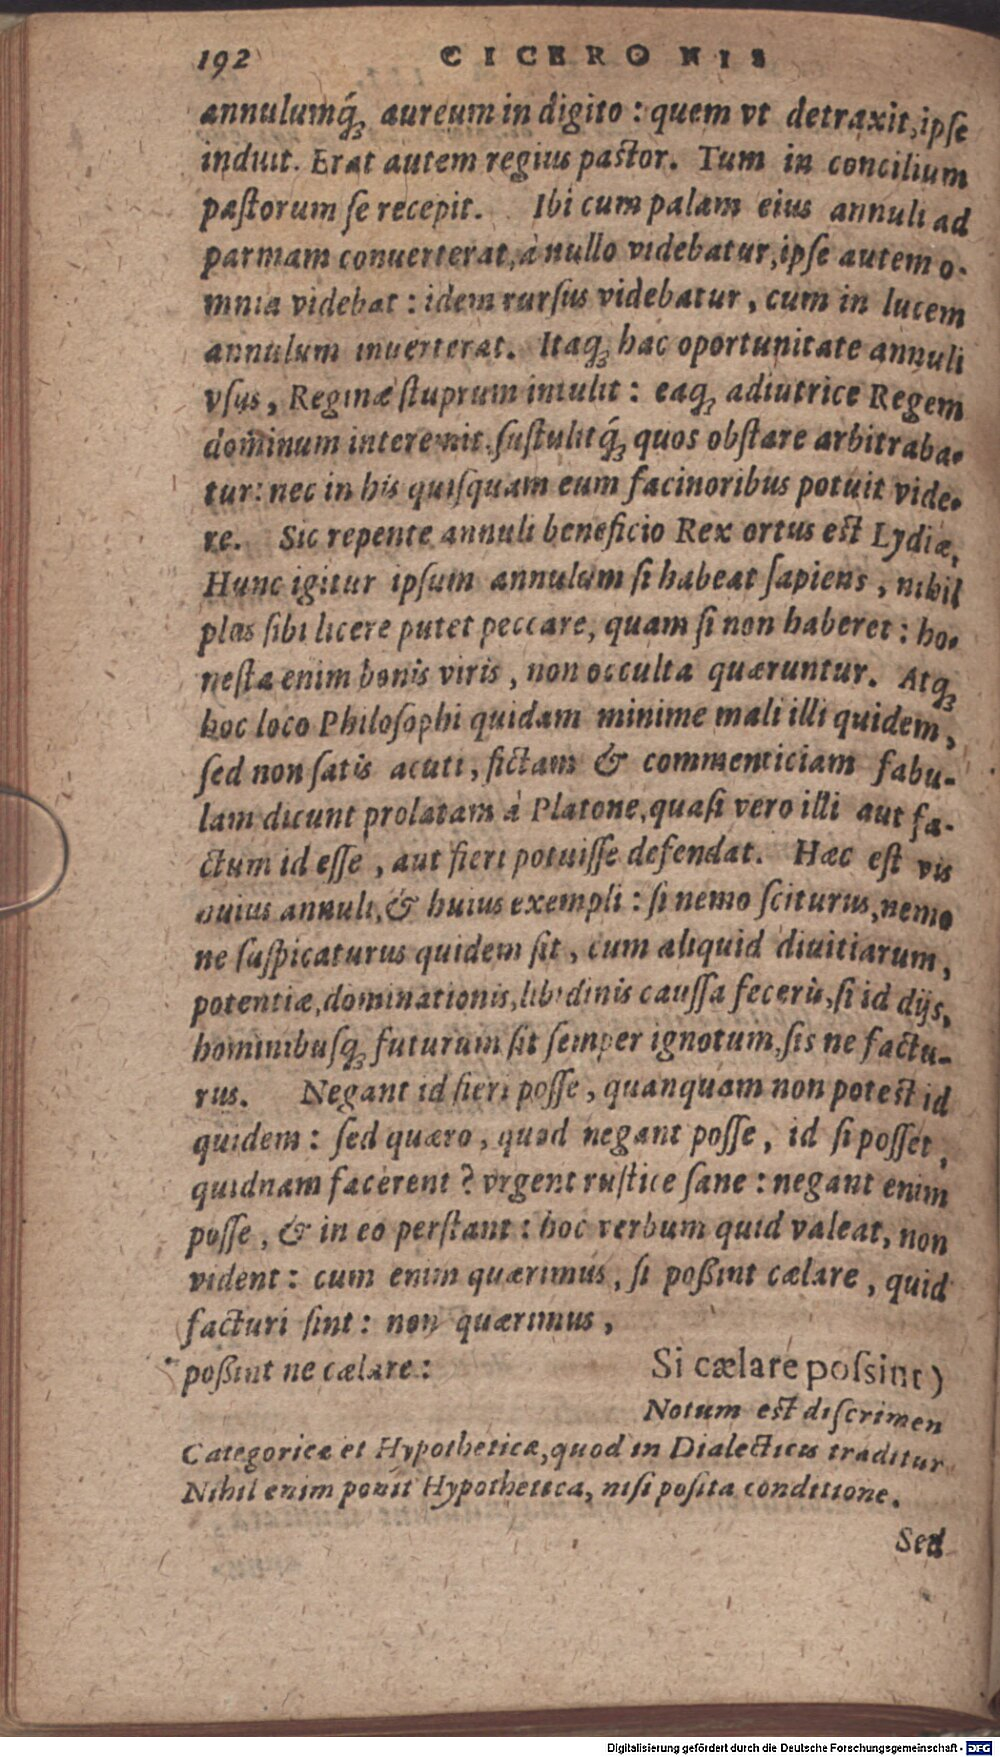 192 CICERONIS
annulumq́ꝫ aureum in digito : quem vt detraxit, ipſe
induit. Erat autem regius paſtor. Tum in concilium
paſtorum ſe recepit. Ibi cum palam eius annuli ad
parmam conuerterat, à nullo videbatur, ipſe autem o-
mnia videbat : idem rurſus videbatur, cum in lucem
annulum inuerterat. Itaqꝫ hac oportunitate annuli
vſus, Reginæ ſtuprum intulit : eaqꝫ adiutrice Regem
dominum interemit, ſuſtulitq́ꝫ quos obſtare arbitraba-
tur: nec in his quiſquam eum facinoribus potuit vide-
re. Sic repente annuli beneficio Rex ortus eſt Lydiæ,
Hunc igitur ipſum annulum ſi habeat ſapiens, nihil
plus ſibi licere putet peccare, quam ſi non haberet : ho-
neſta enim bonis viris, non occulta quæruntur. Atqꝫ
hoc loco Philoſophi quidam minime mali illi quidem,
ſed non ſatis acuti, fictam & commenticiam fabu-
lam dicunt prolatam à Platone, quaſi vero illi aut fa-
ctum id eſſe, aut fieri potuiſſe defendat. Hæc eſt vis
huius annuli, & huius exempli : ſi nemo ſciturus, nemo
ne ſuſpicaturus quidem ſit, cum aliquid diuitiarum,
potentiæ, dominationis, libidinis cauſſa feceris, ſi id dijs,
hominibuſqꝫ futurum ſit ſemper ignotum, ſis ne factu-
rus. Negant id fieri poſſe, quanquam non poteſt id
quidem : ſed quæro, quod negant poſſe, id ſi poſſet,
quidnam facerent ? vrgent ruſtice ſane : negant enim
poſſe, & in eo perſtant : hoc verbum quid valeat, non
vident : cum enim quærimus, ſi poßint cælare, quid
facturi ſint : non quærimus,
poßint ne cælare : Si cælare poſsint)
Notum eſt diſcrimen
Categoricæ et Hypotheticæ, quod in Dialecticis traditur
Nihil enim ponit Hypothetica, niſi poſita conditione.
Sed
Digitalisierung gefördert durch die Deutsche Forschungsgemeinschaft - DFG